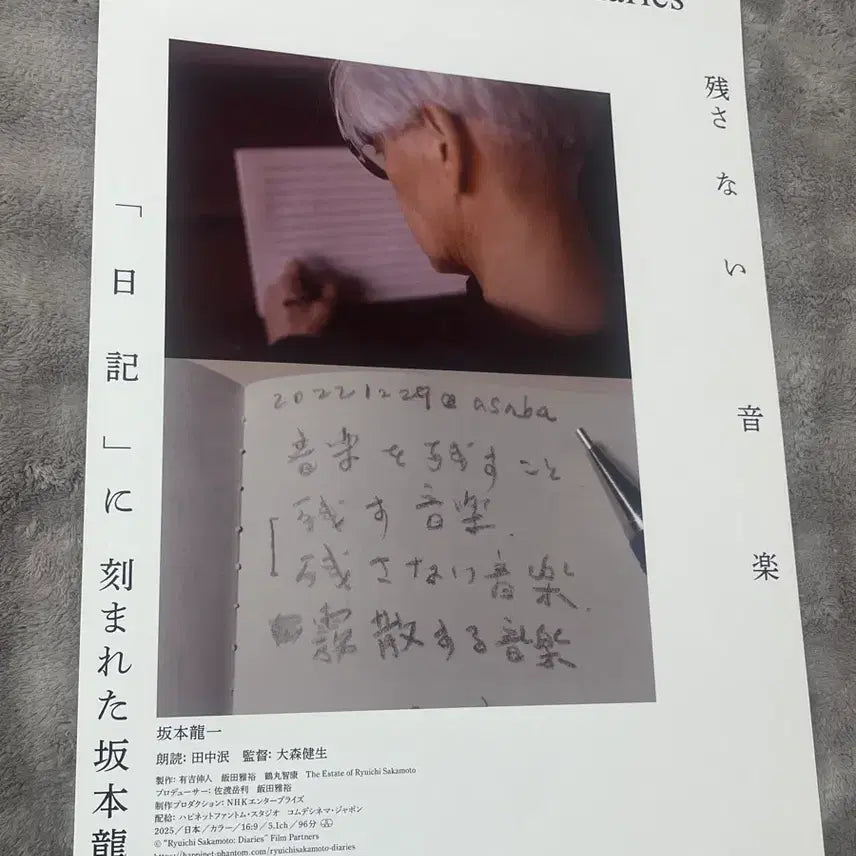 残さない音楽
「日記」に刻まれた坂本龍
20221229@asaba
音楽を残すこと
残す音楽
残さない音楽
霧散する音楽
坂本龍一
朗読: 田中泯　監督: 大森健生
製作: 有吉伸人　飯田雅裕　鶴丸智康　The Estate of Ryuichi Sakamoto
プロデューサー: 佐渡岳利　飯田雅裕
制作プロダクション: NHKエンタープライズ
配給: ハピネットファントム・スタジオ　コムデシネマ・ジャポン
2025／日本／カラー／16:9／5.1ch／96分
© "Ryuichi Sakamoto: Diaries" Film Partners
https://happinet-phantom.com/ryuichisakamoto-diaries